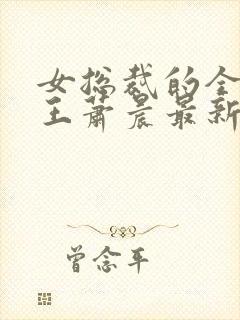 女总裁的全
王萧晨最新
曾念平